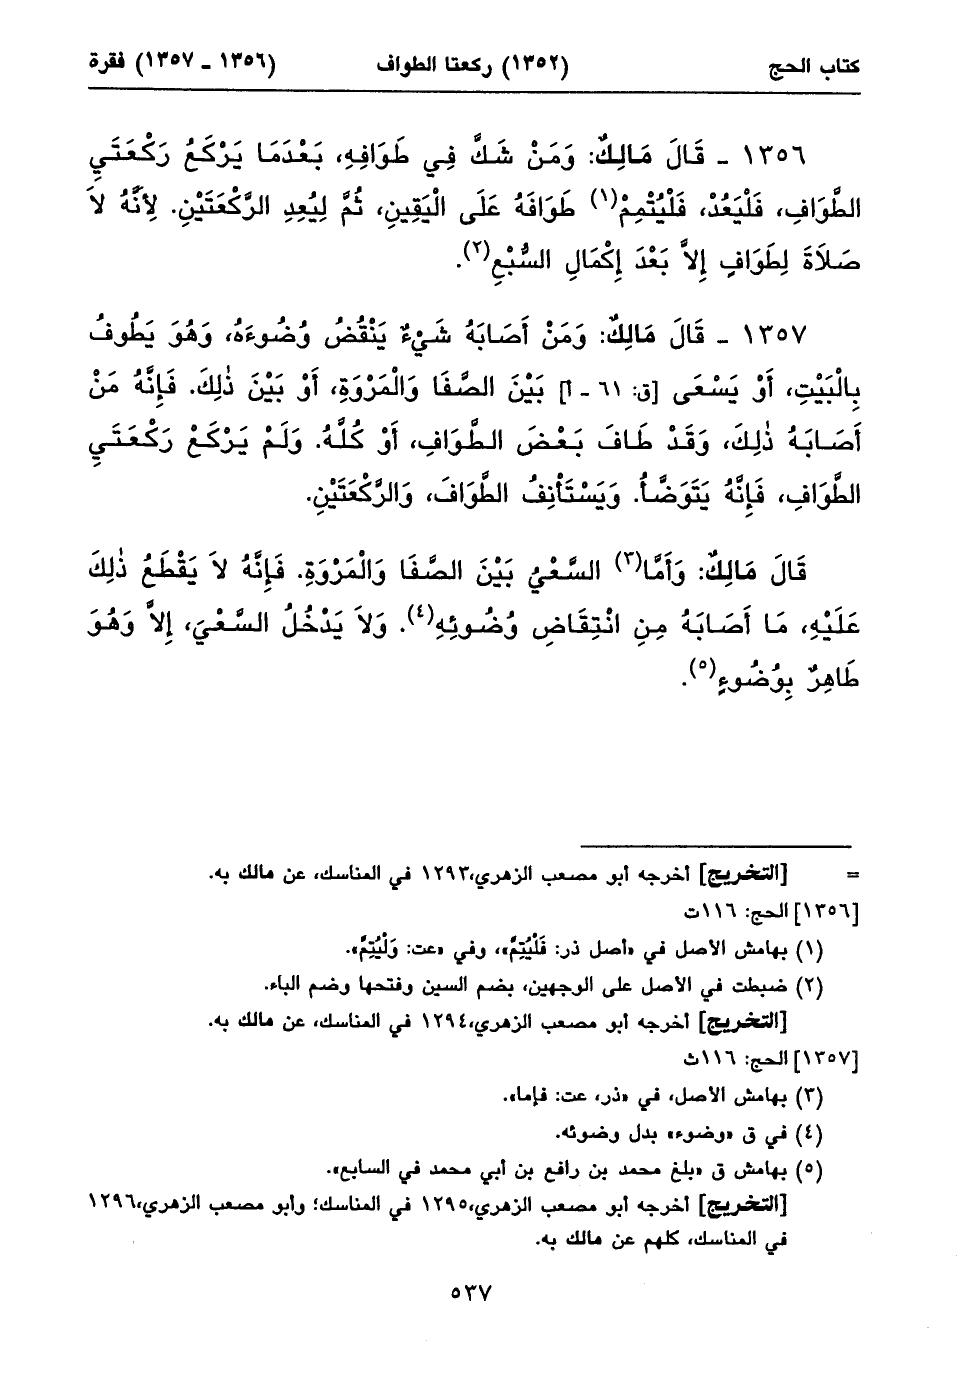 كتاب الحج (١٣٥٢) ركعتا الطواف (١٣٥٦ ـ ١٣٥٧) فقرة
١٣٥٦ ـ قَالَ مَالِكٌ: وَمَنْ شَكَّ فِي طَوَافِهِ، بَعْدَمَا يَرْكَعُ رَكْعَتَيِ
الطَّوَافِ، فَلْيَعُدْ، فَلْيُتْمِمْ(١) طَوَافَهُ عَلَى الْيَقِينِ، ثُمَّ لِيُعِدِ الرَّكْعَتَيْنِ. لِأَنَّهُ لاَ
صَلاَةَ لِطَوَافٍ إِلاَّ بَعْدَ إِكْمَالِ السُّبْعِ(٢).
١٣٥٧ ـ قَالَ مَالِكٌ: وَمَنْ أَصَابَهُ شَيْءٌ يَنْقُضُ وُضُوءَهُ، وَهُوَ يَطُوفُ
بِالْبَيْتِ، أَوْ يَسْعَى [ق: ٦١ ـ أ] بَيْنَ الصَّفَا وَالْمَرْوَةِ، أَوْ بَيْنَ ذٰلِكَ. فَإِنَّهُ مَنْ
أَصَابَهُ ذٰلِكَ، وَقَدْ طَافَ بَعْضَ الطَّوَافِ، أَوْ كُلَّهُ. وَلَمْ يَرْكَعْ رَكْعَتَيِ
الطَّوَافِ، فَإِنَّهُ يَتَوَضَّأُ. وَيَسْتَأْنِفُ الطَّوَافَ، وَالرَّكْعَتَيْنِ.
قَالَ مَالِكٌ: وَأَمَّا(٣) السَّعْيُ بَيْنَ الصَّفَا وَالْمَرْوَةِ. فَإِنَّهُ لاَ يَقْطَعُ ذٰلِكَ
عَلَيْهِ، مَا أَصَابَهُ مِنِ انْتِقَاضِ وُضُوئِهِ(٤). وَلاَ يَدْخُلُ السَّعْيَ، إِلاَّ وَهُوَ
طَاهِرٌ بِوُضُوءٍ(٥).
= [التخريج] أخرجه أبو مصعب الزهري،١٢٩٣ في المناسك، عن مالك به.
[١٣٥٦] الحج: ١١٦ت
(١) بهامش الأصل في «أصل ذر: فَلْيُتِمَّ»، وفي «عت: وَلْيُتِمَّ».
(٢) ضبطت في الأصل على الوجهين، بضم السين وفتحها وضم الباء.
[التخريج] أخرجه أبو مصعب الزهري،١٢٩٤ في المناسك، عن مالك به.
[١٣٥٧] الحج: ١١٦ث
(٣) بهامش الأصل، في «ذر، عت: فإما».
(٤) في ق «وضوء» بدل وضوئه.
(٥) بهامش ق «بلغ محمد بن رافع بن أبي محمد في السابع».
[التخريج] أخرجه أبو مصعب الزهري،١٢٩٥ في المناسك؛ وأبو مصعب الزهري،١٢٩٦
في المناسك، كلهم عن مالك به.
٥٣٧